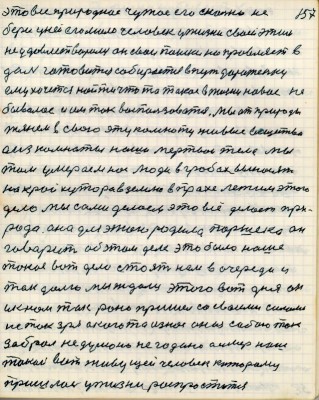 157
это всё природное чужое его сказки не
бери у ней сломило человек у жизни своей этим
не удовлетворили он своё пошел направляет в
даль готовится собирается в путь дорогу ему
ему хочется найти что то такое в жизни новое не
бывалое и им так воспользоваться, мы от природы
живем в своего эту комнату живые существа
а из комнаты наше мертвое тело мы
там умираем нас люди в гробах выносят
на край хутора в землю в прахе лежим этого
дело мы сами делаем это всё делает при-
рода она для этого родила паршека он
говорит об этом деле это было наше
такое вот дело стоят нам в очереди и
так долго мы ждали этого вот дня он
к нам так рано пришел со своими силами
не так зря а кого то из нас он из собою так
забрал не думано не гадано а мир наш
такой вот живущей человек которому
пришлось у жизни распроститься